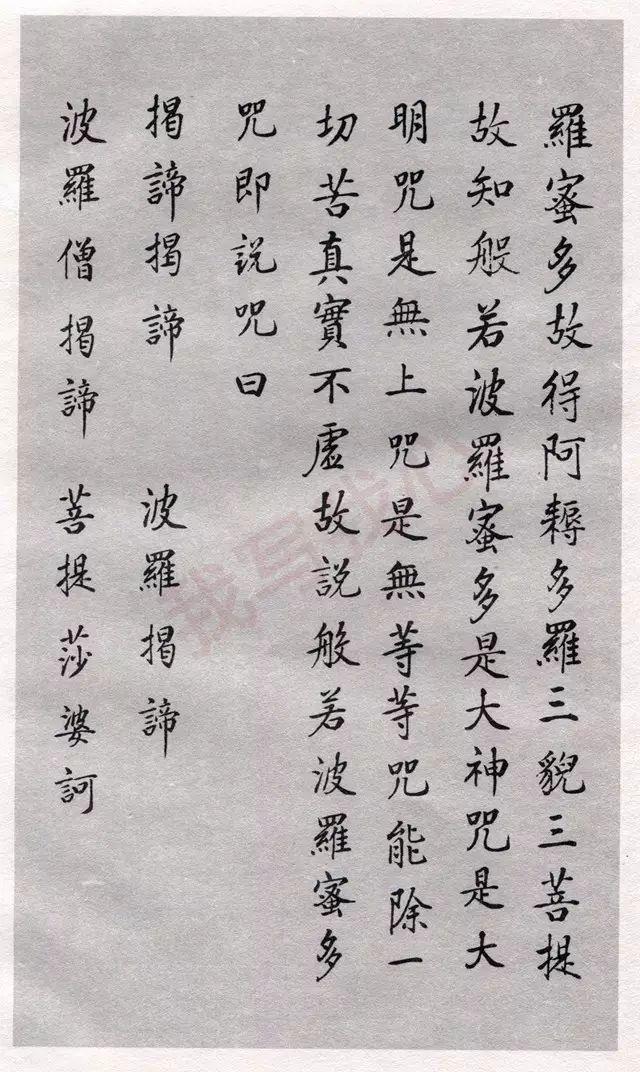 羅蜜多故得阿耨多羅三貌三菩提
故知般若波羅蜜多是大神咒是大
明咒是無上咒是無等等咒能除一
切苦真實不虛故說般若波羅蜜多
咒即說咒曰
揭諦揭諦 波羅揭諦
波羅僧揭諦 菩提莎婆訶
我写我心